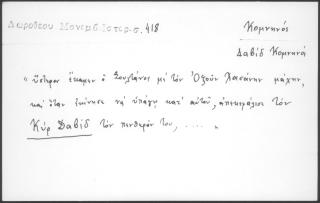 Δωροθέου Μονεμβ. Ιστορ. σ. 418
Κομνηνός
Δαβίδ Κομνηνά
" ὕστερον ἔκαμεν ὁ Σουλτάνος μὲ τὸν Ὀζοὺν Χασάνην μάχην,
καὶ ὅταν ἐκίνησε νὰ ὑπάγῃ κατ' αὐτοῦ, ἀπεκεφάλισε τὸν
Κὺρ Δαβὶδ τὸν πενθερόν του, .... "